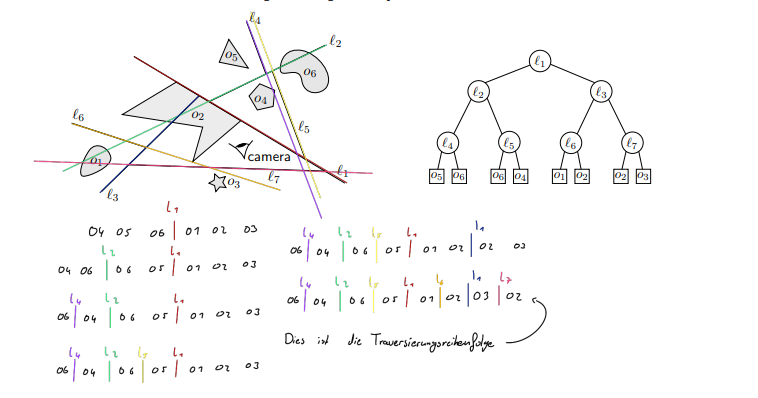 ℓ4
ℓ2
o5
o6
o4
o2
ℓ6
ℓ5
camera
o1
ℓ3
o3
ℓ7
ℓ1
ℓ1
ℓ2 ℓ3
ℓ4 ℓ5 ℓ6 ℓ7
o5 o6 o6 o4 o1 o2 o2 o3
l1
04 05 06 | 01 02 03
l2 l1
04 06 | 06 05 | 01 02 03
l4 l2 l1
06 | 04 | 06 05 | 01 02 03
l4 l2 l5 l1
06 | 04 | 06 | 05 | 01 02 03
l4 l2 l5 l1 l1
06 | 04 | 06 | 05 | 01 02 | 02 03
l4 l2 l5 l1 l6 l1 l7
06 | 04 | 06 | 05 | 01 | 02 | 03 | 02
Dies ist die Traversierungsreihenfolge